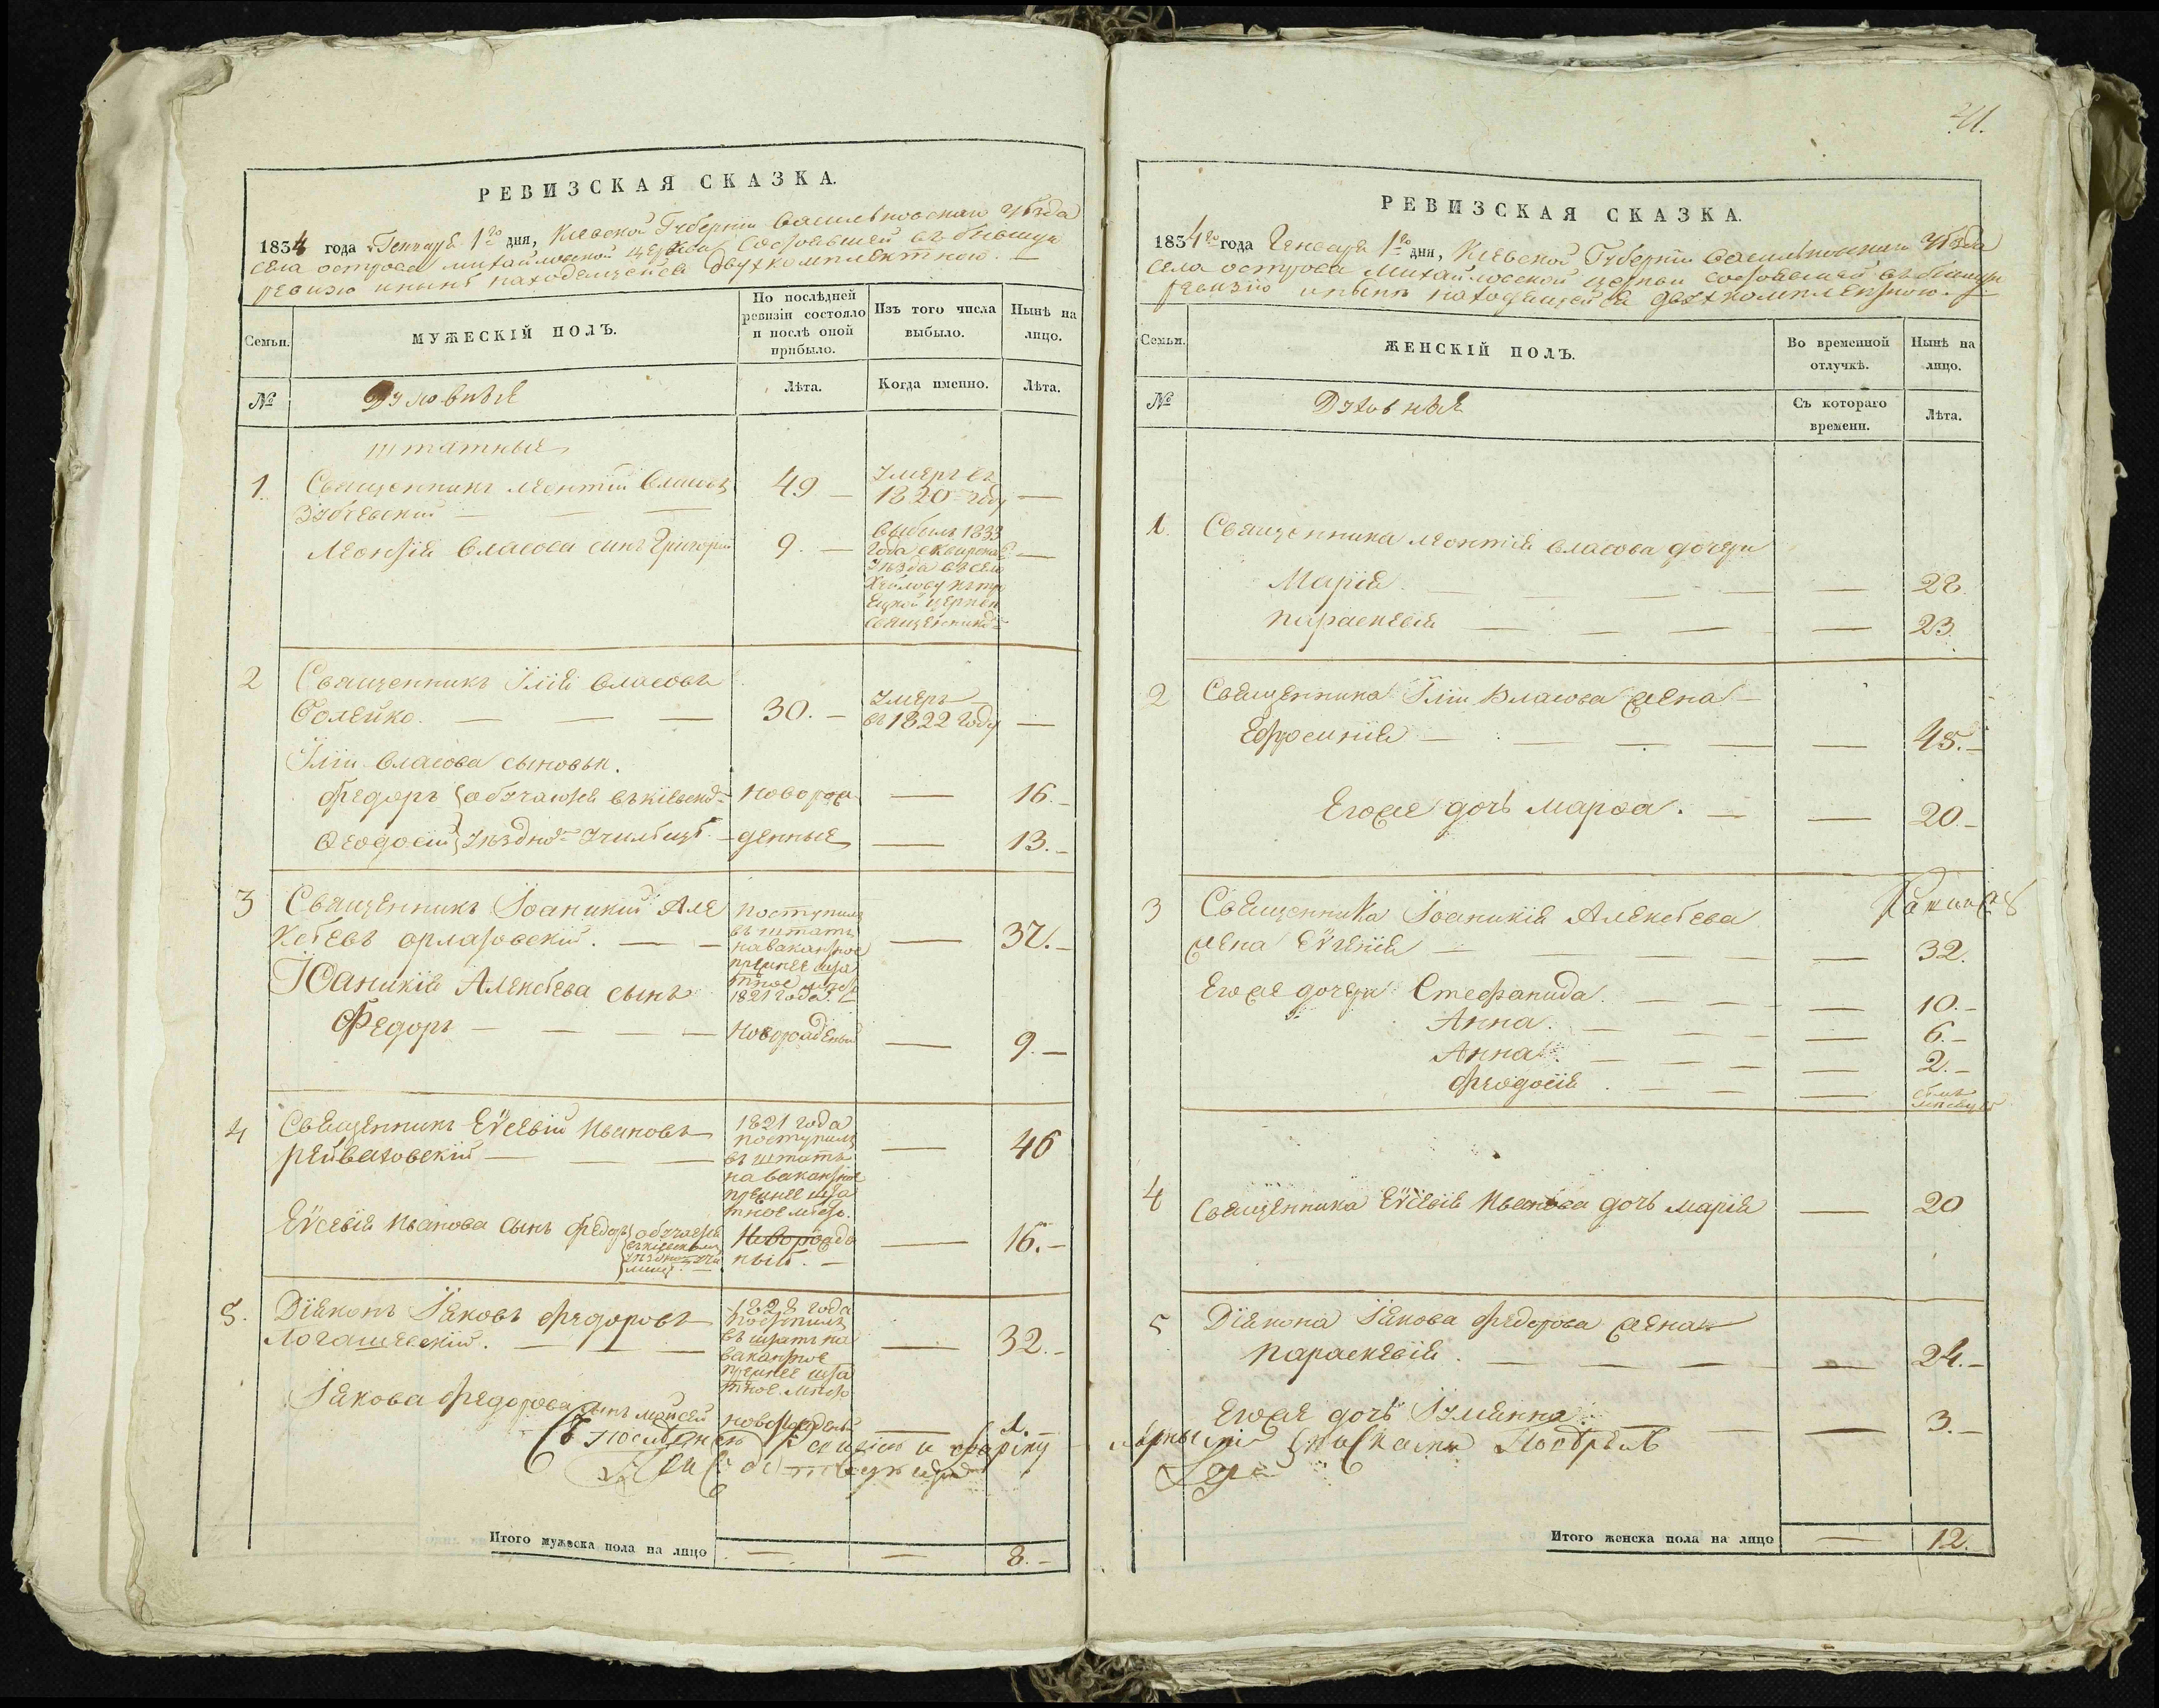 РЕВИЗСКАЯ СКАЗКА.
1834 года Генваря 1го дня, Киевской Губернии Васильковского уѣзда
села острова михайловской церкви состоявшей въ бывшую
ревизію и нынѣ находящейся двухкомплектною.
Семьи.
МУЖЕСКІЙ ПОЛЪ.
По послѣдней
ревизіи состояло
и послѣ оной
прибыло.
Изъ того числа
выбыло.
Нынѣ на
лицо.
№
Духовныя
Лѣта.
Когда именно.
Лѣта.
штатныя
1. Священникъ Леонтий Власовъ 49 — Умеръ въ
Зубчевский — — — 1820 году —
Леонтія Власова сынъ Григорий 9. — Выбылъ 1833
года сквирскаго —
уѣзда въ село
къ тро
ецкой церкви
священникомъ
2 Священникъ Илія Власовъ
Голейко. — — — 30. — Умеръ
въ 1822 году —
Иліи Власова сыновья.
Федоръ обучаются въ киевском новорож — 16. —
Феодосій уѣздном училищѣ. — денные — 13. —
3 Священникъ Іоаникий Але поступилъ
ксѣевъ орлатовскій. — — въ штатъ — 37. —
на вакантное
прежнее шта
тное мѣсто
1821 года.
Іоаникія Алексѣева сынъ
Федоръ — — — — новорожденый — 9. —
4 Священникъ Еѵсевій Ивановъ 1821 года
рейваховскій — — — поступилъ — 46
въ штатъ
на вакантное
прежнее шта
тное мѣсто.
Еѵсевія Иванова сынъ Федоръ обучается новорожде — 16. —
въ киевскомъ
уѣздном учи ный. —
лищѣ.
5. Діяконъ Іяковъ Федоровъ 1828 года
Логашевскій. — — — поступилъ — 32. —
въ штатъ на
вакантное
прежнее шта
тное мѣсто
Іякова Федорова сынъ Мойсей новорожденый — 1. —
Итого мужеска пола на лицо — — 8. —
241.
РЕВИЗСКАЯ СКАЗКА.
1834го года Генваря 1го дня, Киевской Губерніи Васильковскаго уѣзда
села острова Михайловской церкви состоявшей въ бывшую
ревизію и нынѣ находящейся двухкомплектною.
Семьи.
ЖЕНСКІЙ ПОЛЪ.
Во временной
отлучкѣ.
Нынѣ на
лицо.
№
Духовныя
Съ котораго
времени.
Лѣта.
1. Священника Леонтія Власова дочери
Марія — — — — — 28.
Параскевія — — — — — 23.
2 Священника Иліи Власова жена —
Ефросинія — — — — — 45. —
Его же дочь Марфа. — — 20. —
3 Священника Іоаникія Алексѣева
жена Еѵгенія — — — — — 32.
Его же дочери Стефанида. — — — — 10. —
Анна. — — — — 6. —
Анна. — — — — 2. —
Феодосія. — — — —
4 Священника Еѵсевія Иванова дочь Марія — 20
5 Діякона Іякова Федорова жена
Параскевія. — — — — — 24. —
Его же дочь Іуліянна. — — — 3. —
Итого женска пола на лицо — 12. —